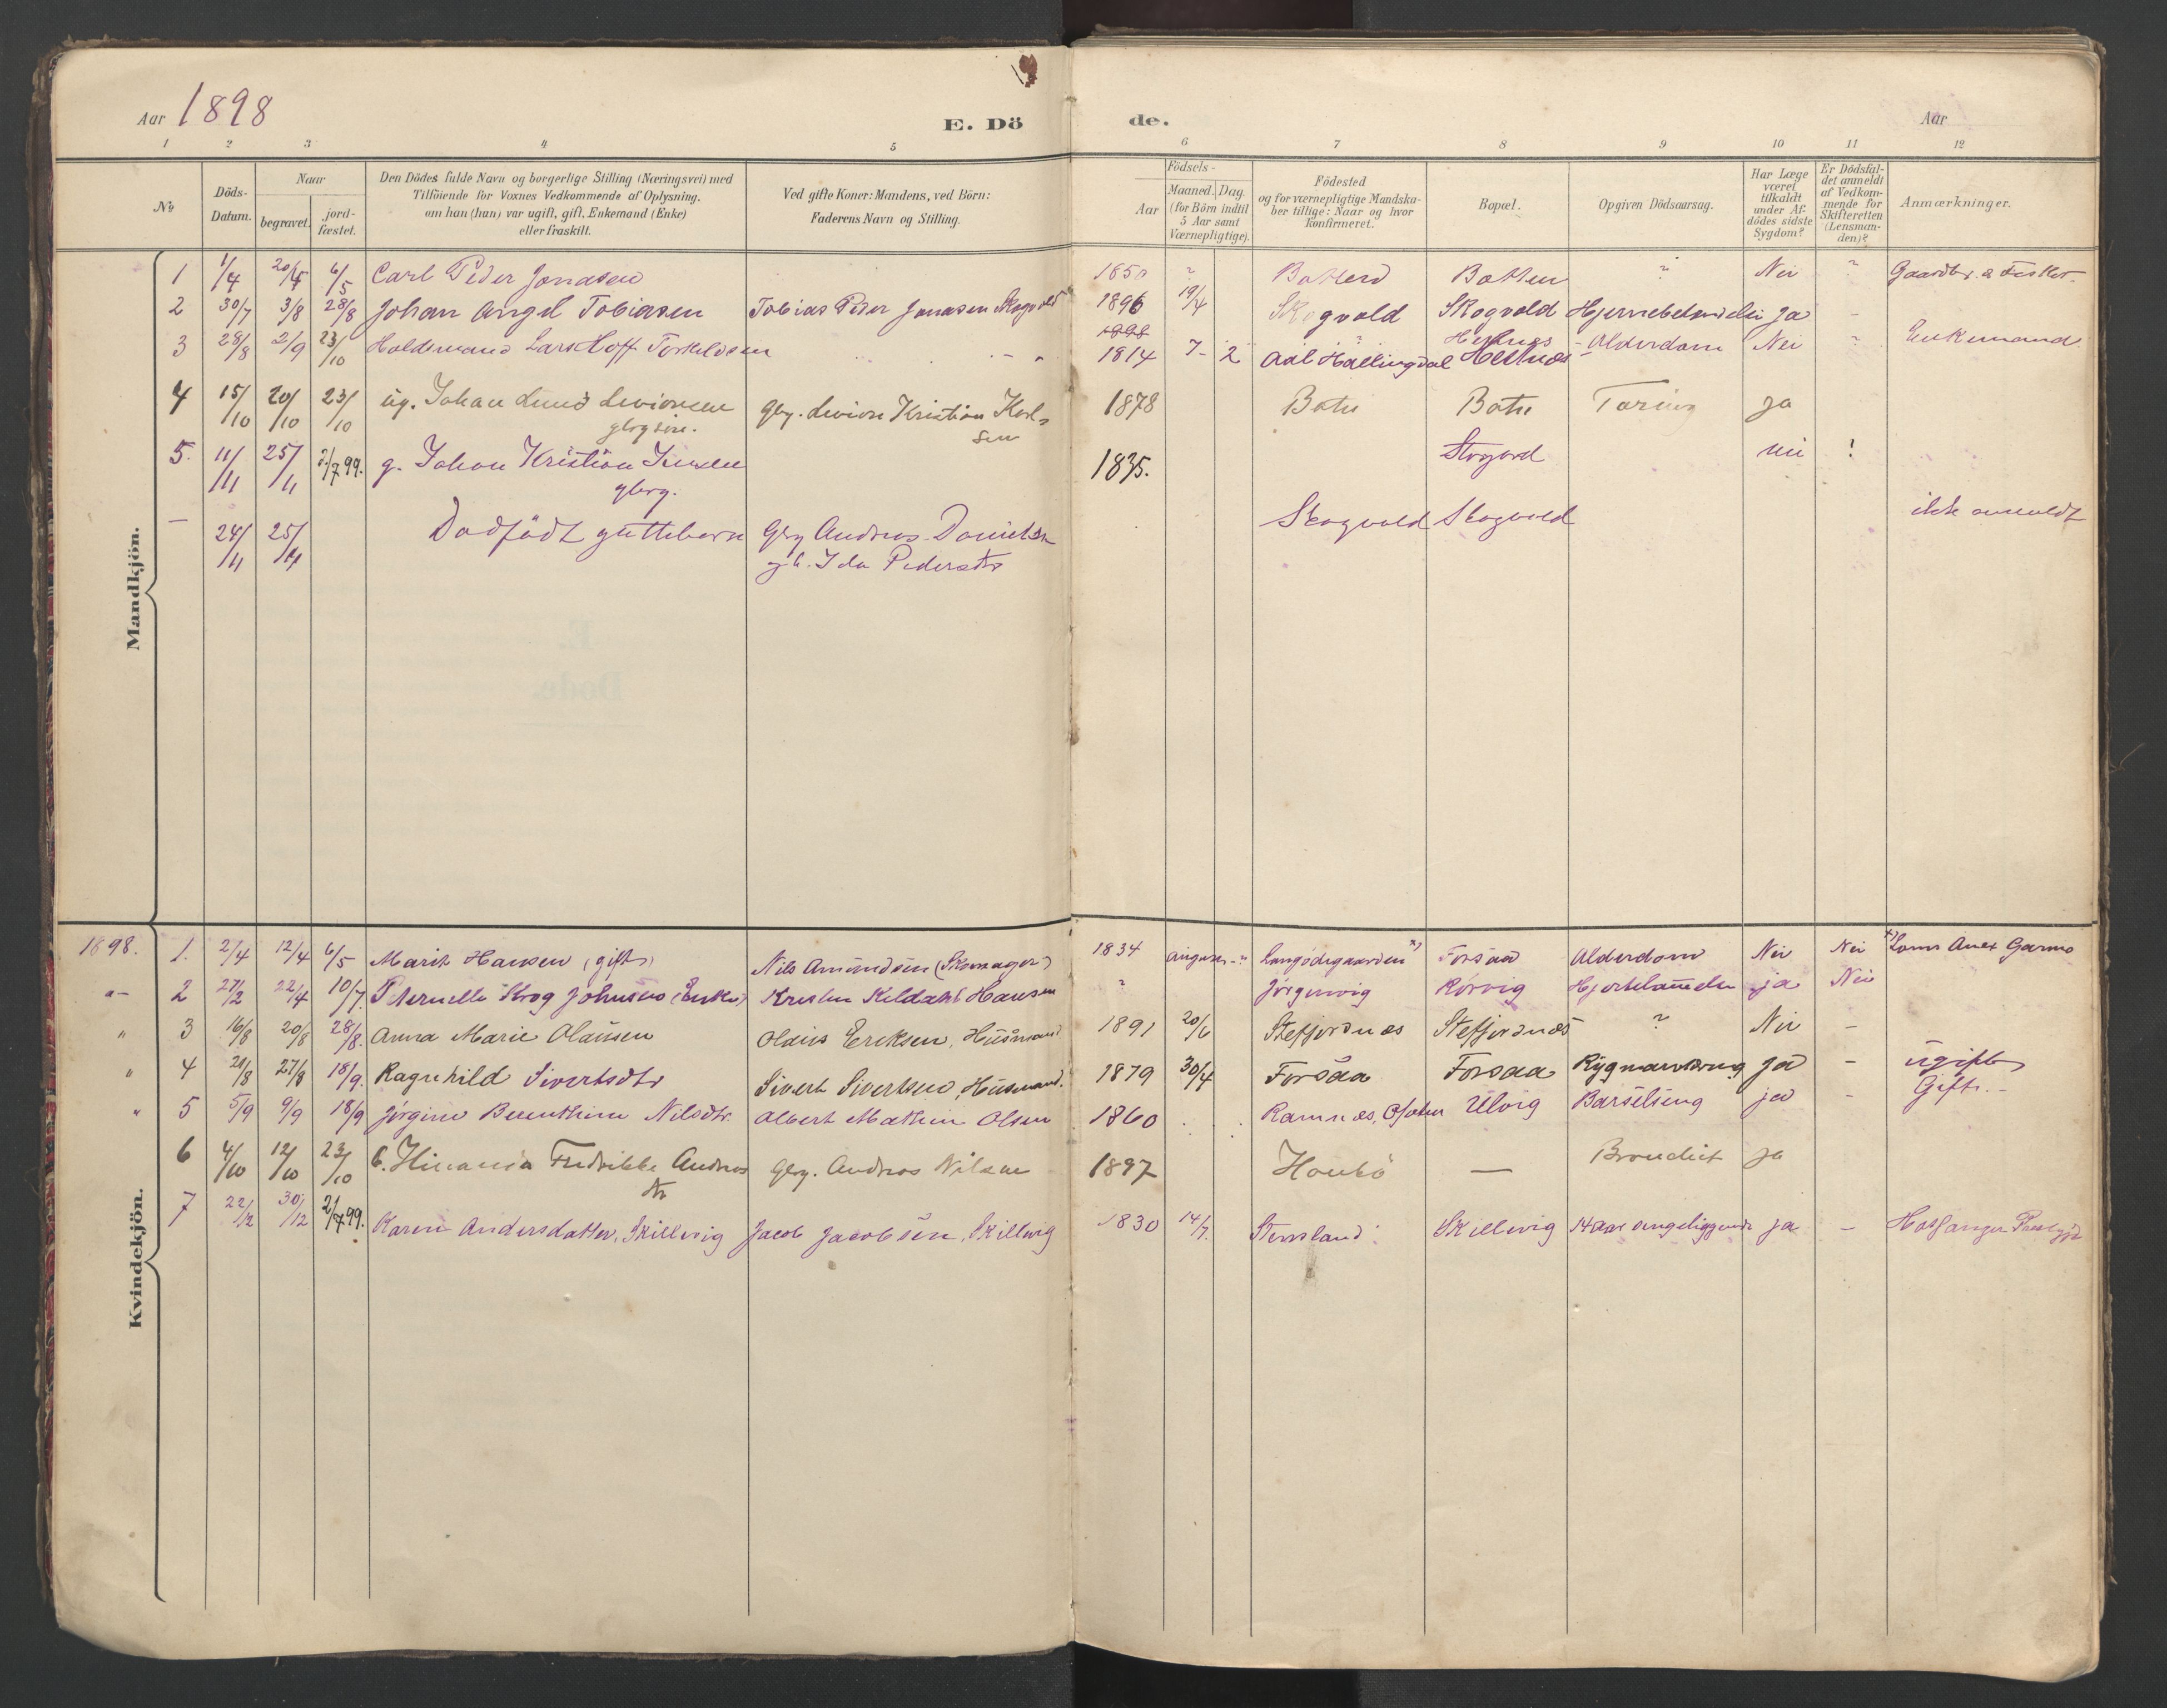 Aar 1898
E. Döde.
Aar
1 2 3 4 5 6 7 8 9 10 11 12
No
Döds-Datum.
Naar
begravet.
jordfæstet.
Den Dödes fulde Navn og borgerlige Stilling (Næringsvei) med
Tilföiende for Voxnes Vedkommende af Oplysning.
om han (hun) var ugift, gift, Enkemand (Enke)
eller fraskilt.
Ved gifte Koner: Mandens, ved Börn:
Faderens Navn og Stilling.
Födsels-
Aar
Maaned. Dag.
(for Börn indtil
5 Aar samt
Værnepligtige).
Födested
og for værnepligtige Mandska-
ber tillige: Naar og hvor
Konfirmeret.
Bopæl.
Opgiven Dödsaarsag.
Har Læge
været
tilkaldt
under Af-
dödes sidste
Sygdom?
Er Dödsfal-
det anmeldt
af Vedkom-
mende for
Skifteretten
(Lensman-
den)?
Anmærkninger.
Mandkjön.
1 1/4 20/4 6/5 Carl Peder Jonasen Botten ? Nei ? Gaardbr. & Fisker.
2 30/7 3/8 28/8 Johan Angel Tobiasen Tobias Peder Jonasen Skogvold 1896 19/4 Skogvold Skogvold Ja -
3 28/8 2/9 23/10 Lars Hoff Torkildsen 1898 1814 7- 2 Aal Hallingdal Helnæs Alderdom Nei ? Enkemand.
4 15/10 20/10 23/10 ug. Johan Lund
gbrg. Kristian Karl-
sen 1878 Botn Botn Tæring ja
5. 11/11 25/11 2/7 99. g. Johan Kristian Jensen
gbrg. 1835. Storjord nei !
— 24/11 25/11 Dødfødt guttebarn Gbrg Andreas Danielsen
og h. Ida Pedersdtr Skogvold Skogvold ikke anmeldt
Kvindekjön.
1898. 1. 2/4 12/4 6/5 Marit Hansen (gift) Nils Amundsen (Skomager) 1834 august - " x) Forsaa Alderdom Nei Nei x) Loms Anex Garmo
" - 2 27/2 22/4 10/7. Krog Johnsen (Enke) Kildahl Hansen ? Jørgenvig Rørvig ja Nei
" 3 16/8 20/8 28/8. Anna Marie Olausen Olaus Eriksen, Husmand 1891 20/6 Stefjordnæs Stefjordnæs ? Nei -
" 4 20/8 27/8 18/9. Ragnhild Sivertsdtr Sivert Sivertsen, Husmand. 1879 30/4 Forsaa Forsaa ja - ugift
" 5 5/9 9/9 18/9 Jørgine Berenthine Nilsdtr. Albert Mathin Olsen 1860 Ramnæs, Ofoten Ulvig Barselseng ja - Gift. -
6 4/10 12/10 23/10 b. Fredrikke Andreas
dtr Gbrg. Andreas Nilsen 1897 — ja
7 22/12 30/12 2/7 99. Karen Andersdatter, Skillevig Jacob Jacobsen, Skillevig 1830 14/7. Skillevig 14 Aar sengeliggende ja -